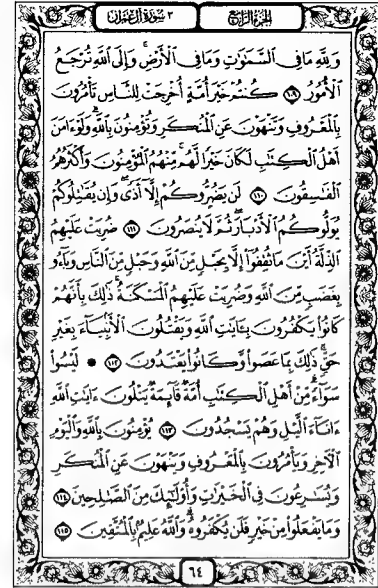 الجزء الرابع ٣ سورة آل عمران
وَلِلَّهِ مَا فِي السَّمَٰوَٰتِ وَمَا فِي الْأَرْضِ ۚ وَإِلَى اللَّهِ تُرْجَعُ
الْأُمُورُ ١٠٩ كُنتُمْ خَيْرَ أُمَّةٍ أُخْرِجَتْ لِلنَّاسِ تَأْمُرُونَ
بِالْمَعْرُوفِ وَتَنْهَوْنَ عَنِ الْمُنكَرِ وَتُؤْمِنُونَ بِاللَّهِ ۗ وَلَوْ ءَامَنَ
أَهْلُ الْكِتَٰبِ لَكَانَ خَيْرًا لَّهُم ۚ مِّنْهُمُ الْمُؤْمِنُونَ وَأَكْثَرُهُمُ
الْفَٰسِقُونَ ١١٠ لَن يَضُرُّوكُمْ إِلَّا أَذًى ۖ وَإِن يُقَٰتِلُوكُمْ
يُوَلُّوكُمُ الْأَدْبَارَ ثُمَّ لَا يُنصَرُونَ ١١١ ضُرِبَتْ عَلَيْهِمُ
الذِّلَّةُ أَيْنَ مَا ثُقِفُوٓا۟ إِلَّا بِحَبْلٍ مِّنَ اللَّهِ وَحَبْلٍ مِّنَ النَّاسِ وَبَآءُو
بِغَضَبٍ مِّنَ اللَّهِ وَضُرِبَتْ عَلَيْهِمُ الْمَسْكَنَةُ ۚ ذَٰلِكَ بِأَنَّهُمْ
كَانُوا۟ يَكْفُرُونَ بِـَٔايَٰتِ اللَّهِ وَيَقْتُلُونَ الْأَنۢبِيَآءَ بِغَيْرِ
حَقٍّ ۚ ذَٰلِكَ بِمَا عَصَوا۟ وَّكَانُوا۟ يَعْتَدُونَ ١١٢ ۞ لَيْسُوا۟
سَوَآءً ۗ مِّنْ أَهْلِ الْكِتَٰبِ أُمَّةٌ قَآئِمَةٌ يَتْلُونَ ءَايَٰتِ اللَّهِ
ءَانَآءَ الَّيْلِ وَهُمْ يَسْجُدُونَ ١١٣ يُؤْمِنُونَ بِاللَّهِ وَالْيَوْمِ
الْءَاخِرِ وَيَأْمُرُونَ بِالْمَعْرُوفِ وَيَنْهَوْنَ عَنِ الْمُنكَرِ
وَيُسَٰرِعُونَ فِي الْخَيْرَٰتِ وَأُو۟لَٰٓئِكَ مِنَ الصَّٰلِحِينَ ١١٤
وَمَا يَفْعَلُوا۟ مِنْ خَيْرٍ فَلَن يُكْفَرُوهُ ۗ وَاللَّهُ عَلِيمٌۢ بِالْمُتَّقِينَ ١١٥
٦٤